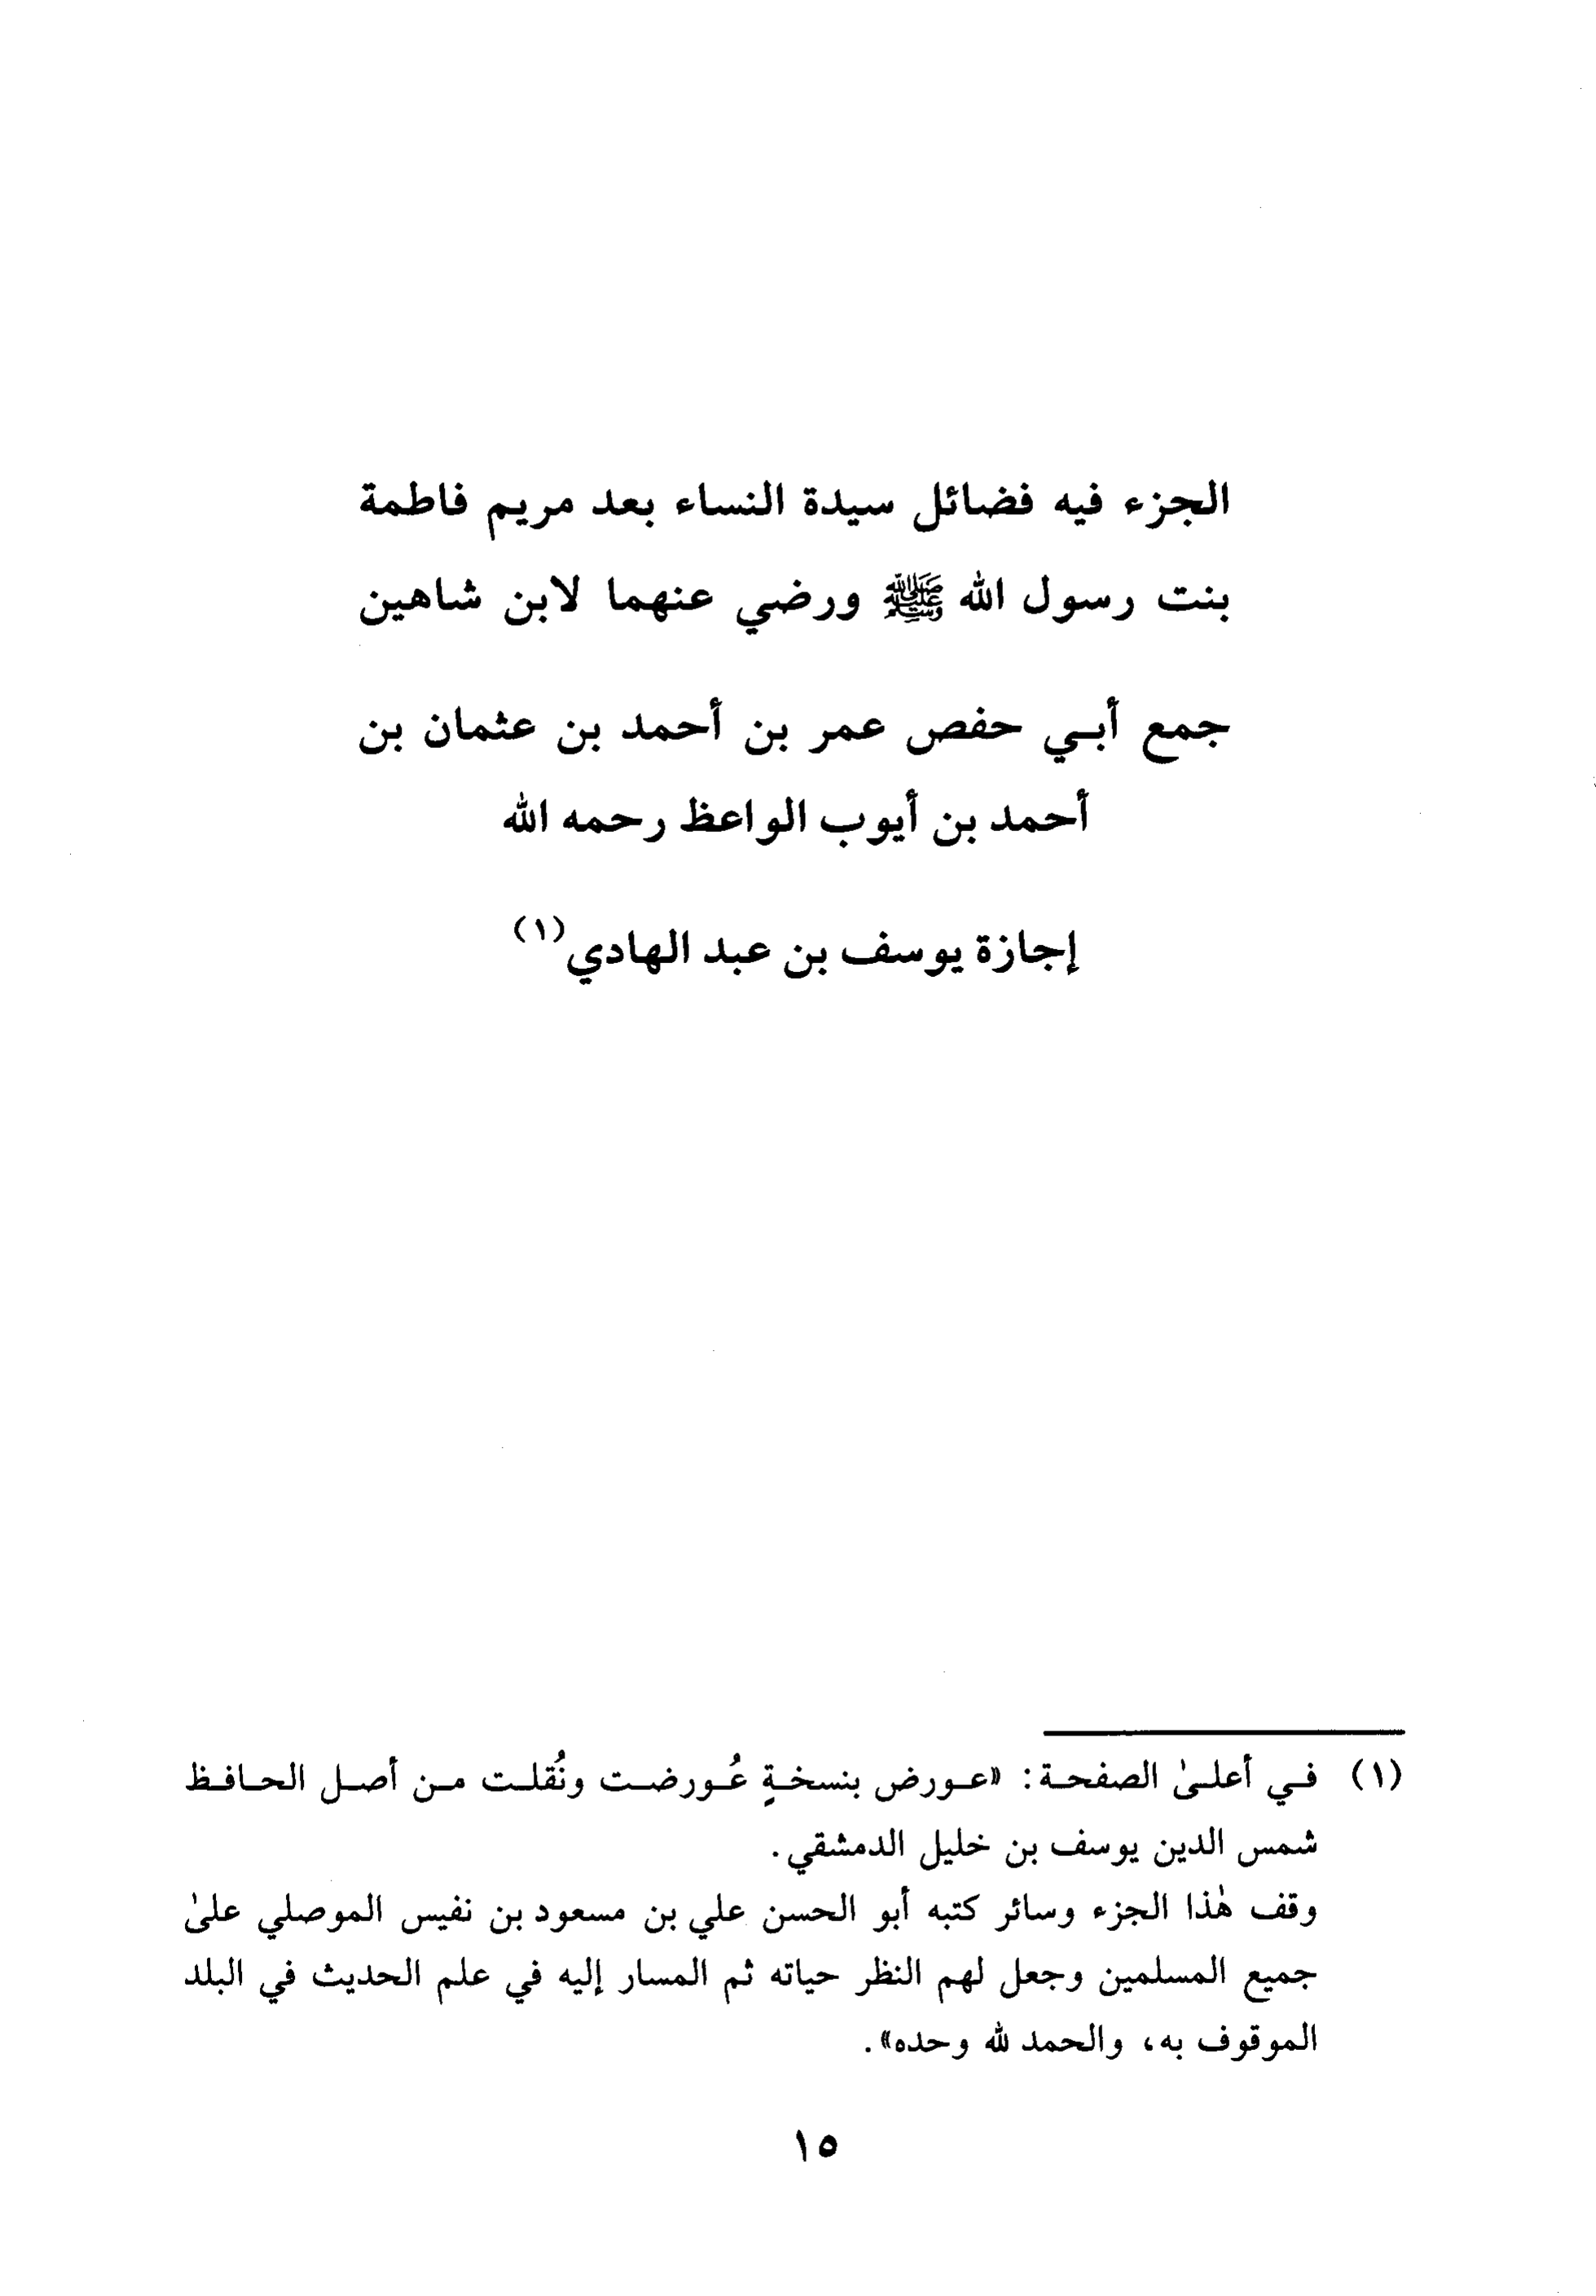 الجزء فيه فضائل سيدة النساء بعد مريم فاطمة
بنت رسول الله ﷺ ورضي عنهما لابن شاهين
جمع أبي حفص عمر بن أحمد بن عثمان بن
أحمد بن أيوب الواعظ رحمه الله
إجازة يوسف بن عبد الهادي(١)
(١) في أعلىٰ الصفحة: «عورض بنسخةٍ عُورضت ونُقلت من أصل الحافظ
شمس الدين يوسف بن خليل الدمشقي.
وقف هٰذا الجزء وسائر كتبه أبو الحسن علي بن مسعود بن نفيس الموصلي علىٰ
جميع المسلمين وجعل لهم النظر حياته ثم المسار إليه في علم الحديث في البلد
الموقوف به، والحمد لله وحده».
١٥